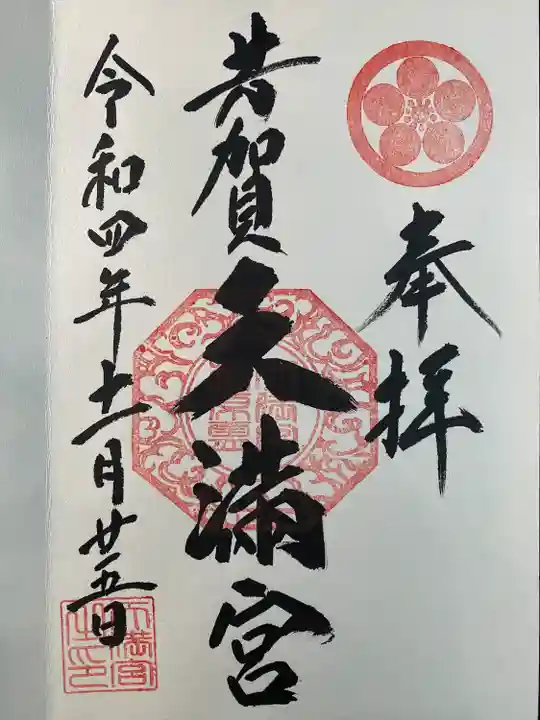 奉拝
芳賀天満宮
令和四年十一月廿五日